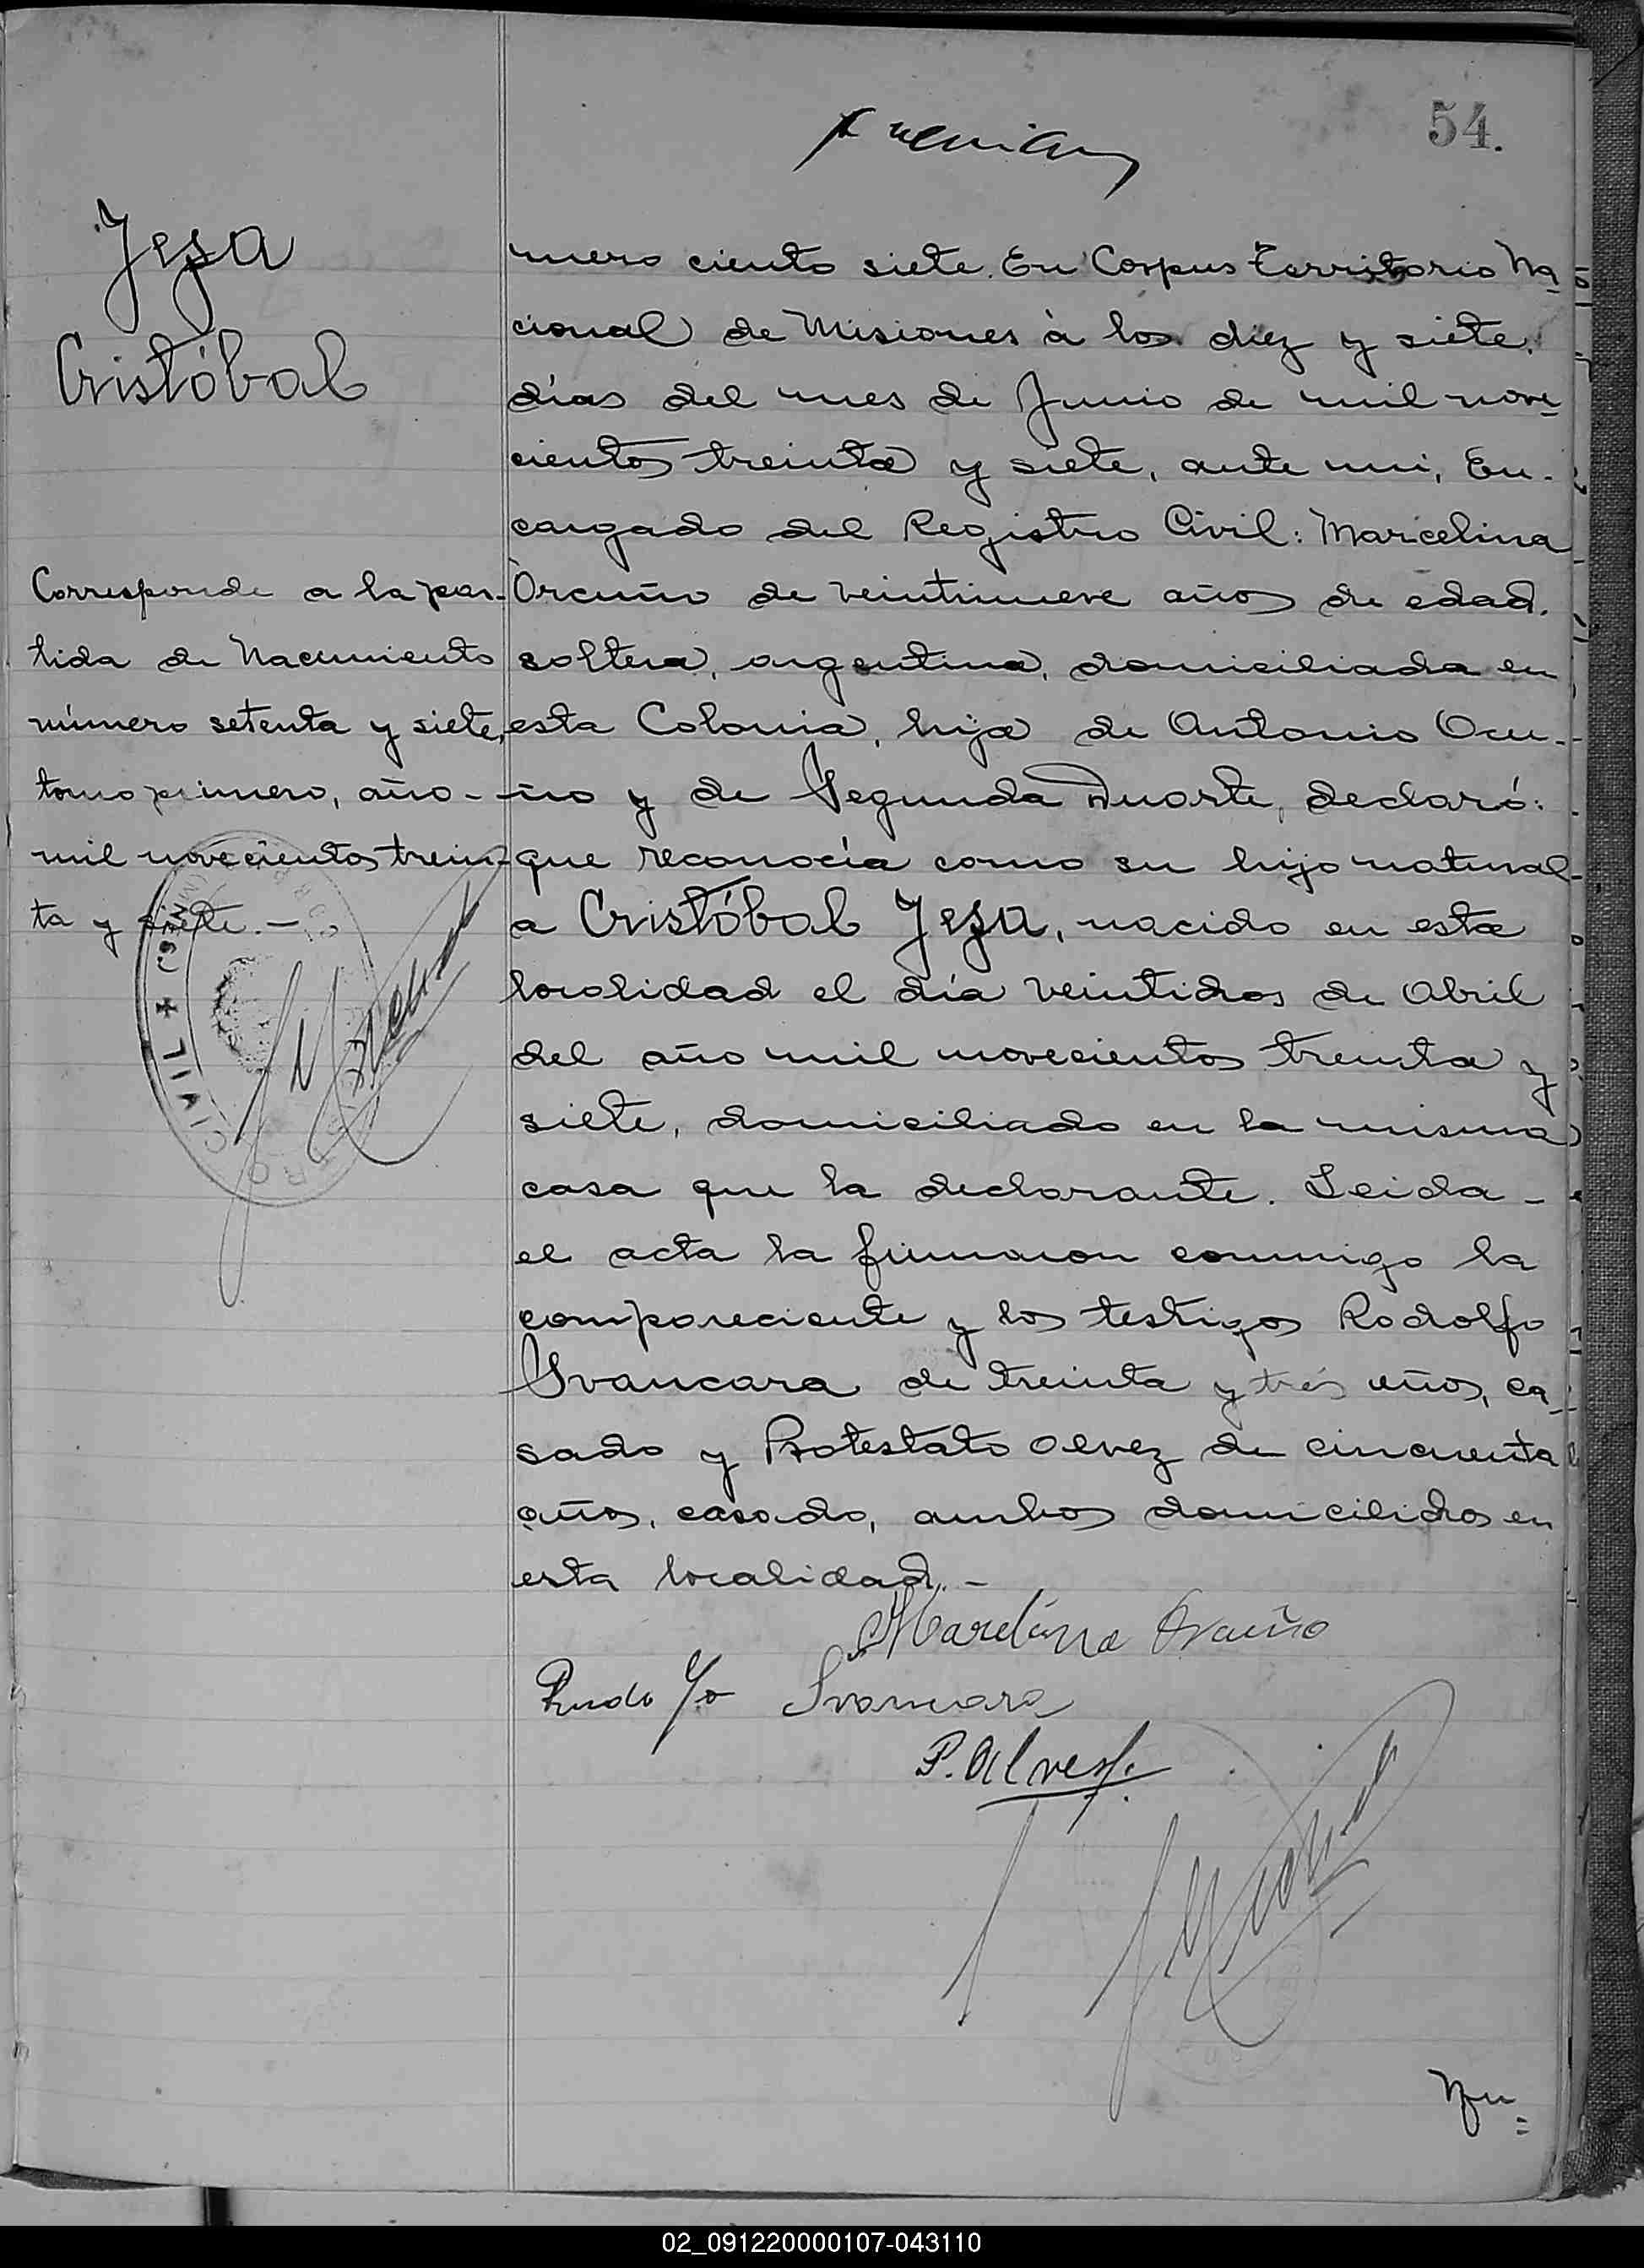 54.
Jeja
Cristóbal
mero ciento siete. En Corpus Territorio Na-
cional de Misiones à los diez y siete.
días del mes de Junio de mil nove-
cientos treinta y siete, ante mi, En-
cargado del Registro Civil: Marcelina
Orcuño de veintinueve años de edad.
soltera, argentina, domiciliada en
esta Colonia, hija de Antonio Ocu-
ño y de Segunda Duarte, declaró:
que reconocía como su hijo natural
a Cristóbal Jeja, nacido en esta
localidad el día veintidos de Abril
del año mil novecientos treinta y
siete, domiciliado en la misma
casa que la declarante. Leida -
el acta la firmaron conmigo la
compareciente y los testigos Rodolfo
Svancara de treinta y trés años, ca-
sado y Protestato Olvez de cincuenta
años, casado, ambos domicilidos en
esta localidad. -
Corresponde a la par-
tida de Nacimiento
número setenta y siete,
tomo primero, año -
mil novecientos trein-
ta y siete. -
CIVIL
Marcelina Orcuño
Rudolfo Svancara
P. Alvez.
Nu=
02_091220000107-043110